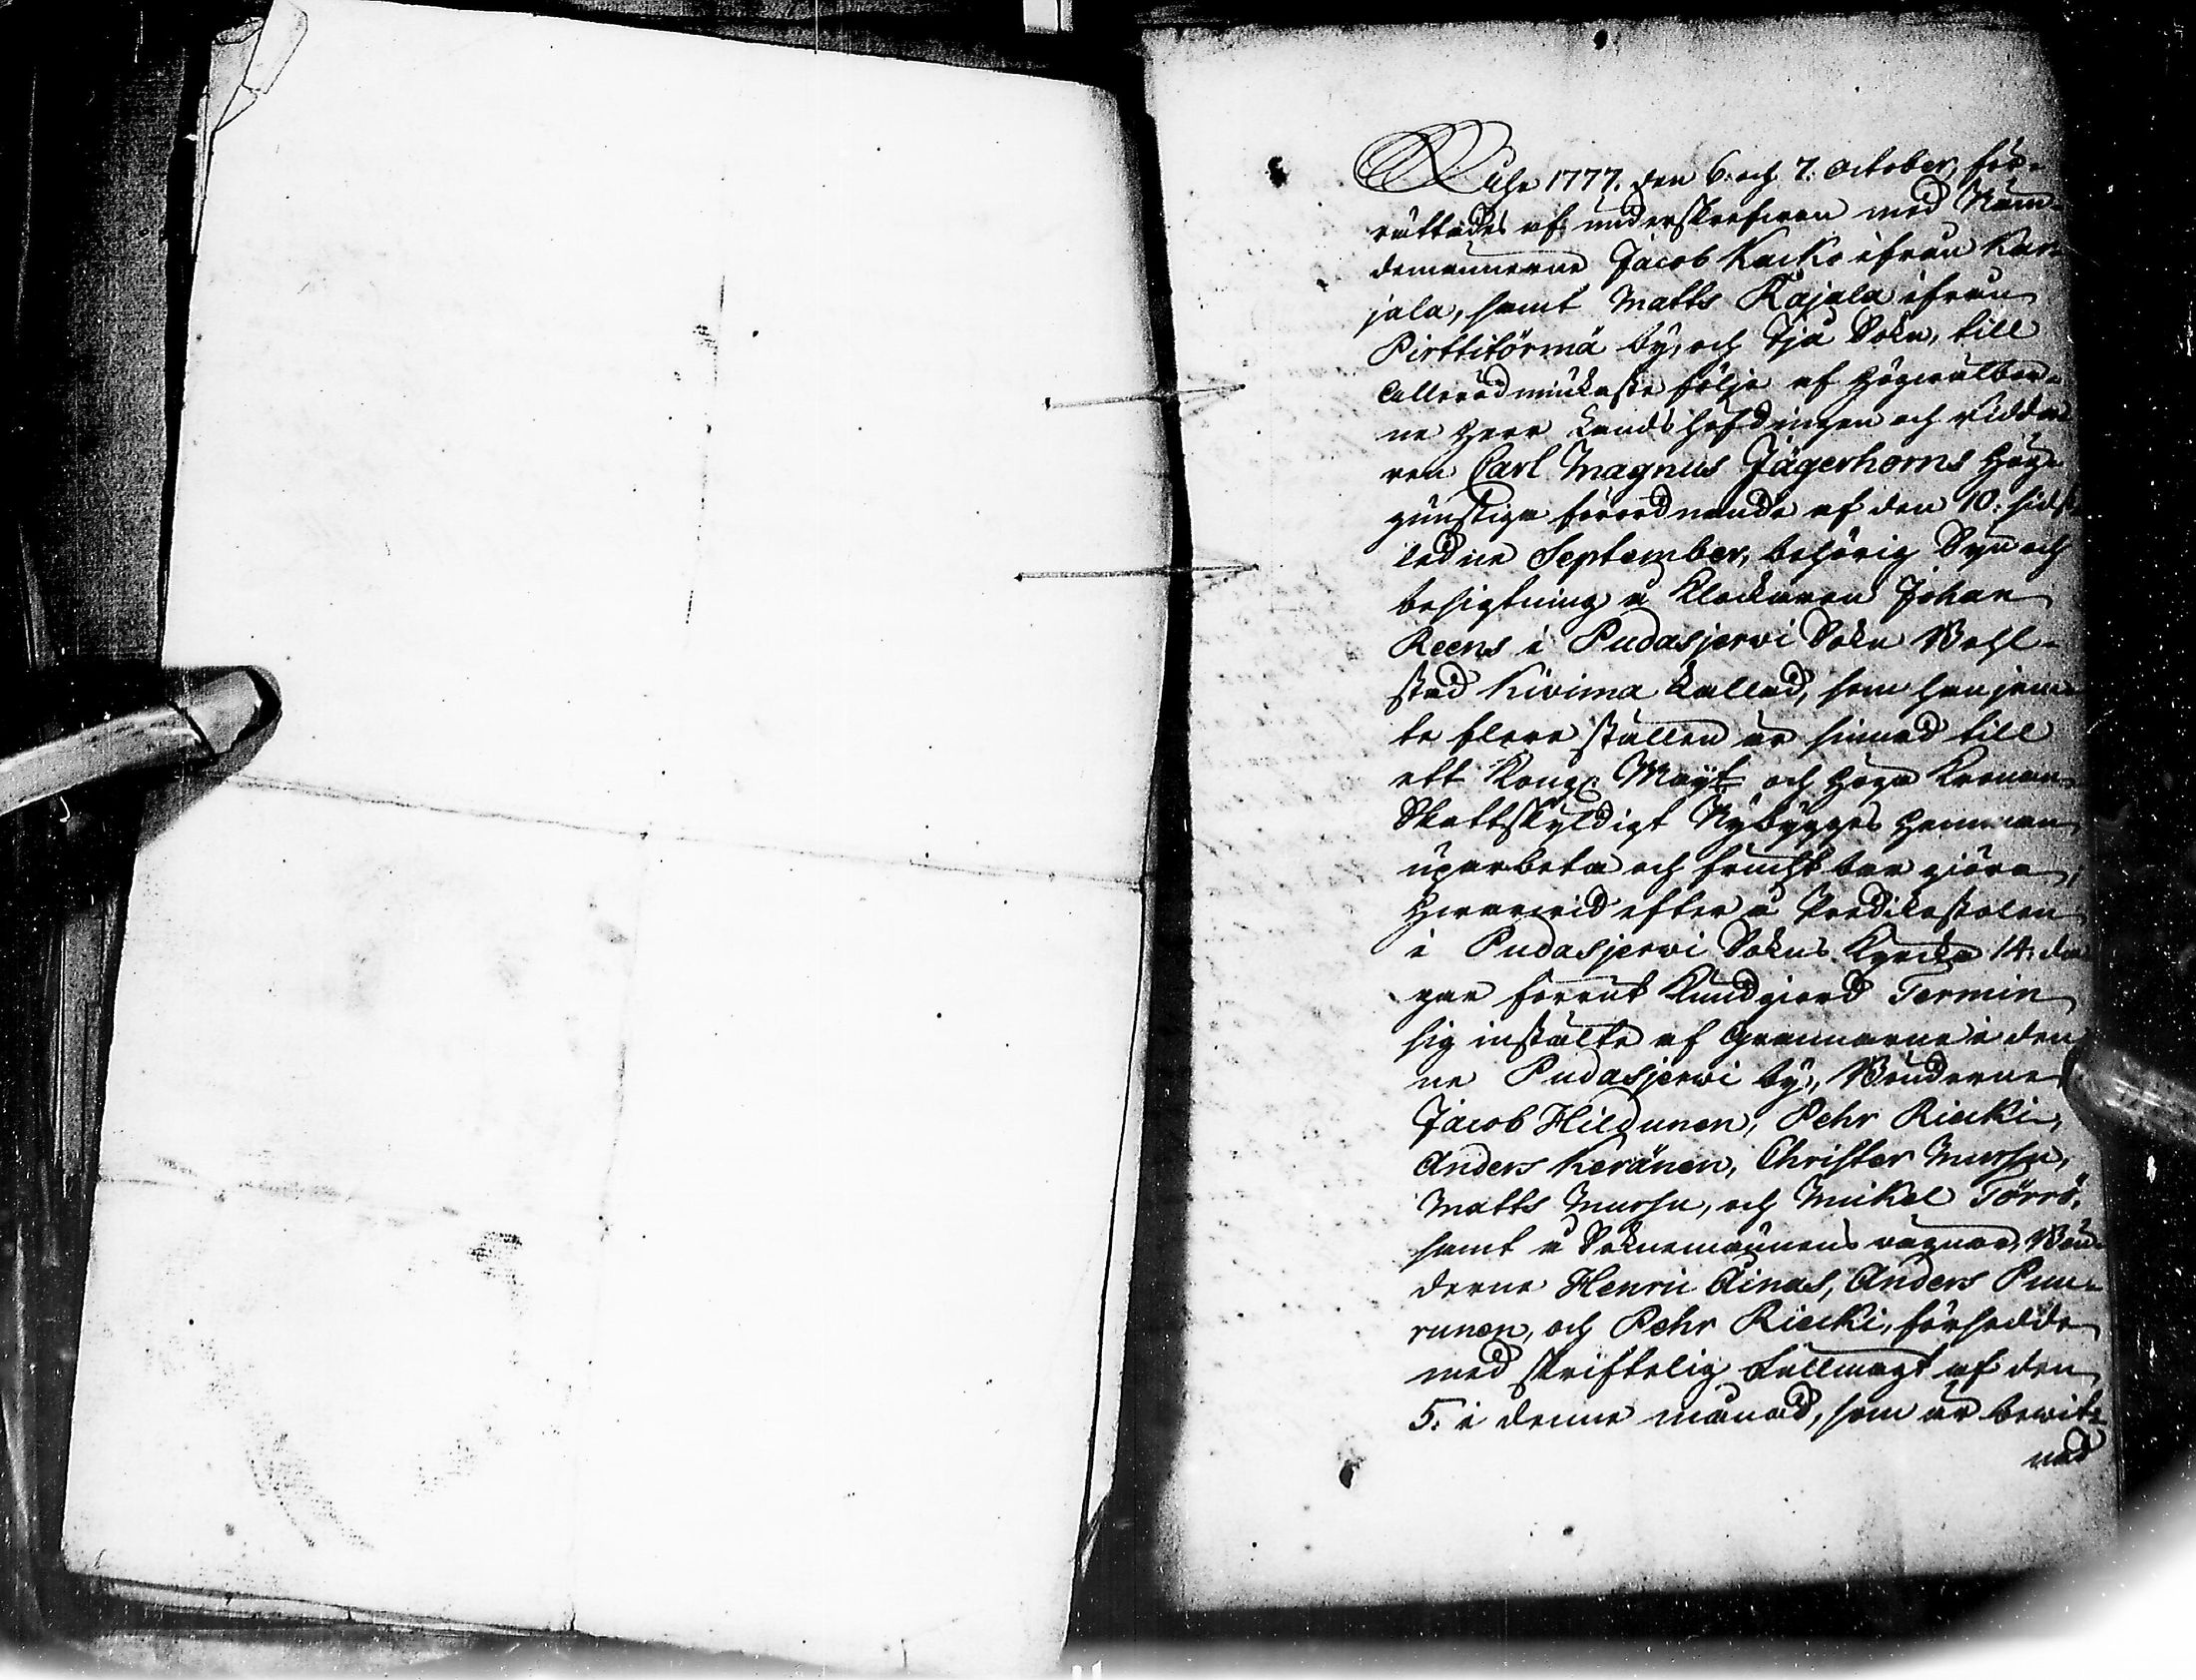 Åhr 1777. den 6. och 7. October, för-
rättades af underskrefwen med Näm-
demännerne Jacob Kacko ifrån Kar-
jala, samt Matts Kajala ifrån
Pirttitörmä by, och Ijå Sokn, till
allerödmiukaste följe af Högwälbor-
ne Herr Landshöfdingen och Ridda-
ren Carl Magnus Jägerhorns Höge
gunstige förordnande af den 10. sidst-
ledne September, behörig Syn och
besigtning å Klockaren Johan
Reens i Pudasjerwi Sokn Bohl-
stad Kivima kallad, som han jem-
te flere ställen är sinnad till
ett Kongl. Mayt. och Höga Kronan
Skattskyldigt Nybygges Hemman
uparbeta och frucktbar giöra,
Hwarwid efter å Predikostolen
i Pudasjerwi Sokns Kyrcka 14. da-
gar förrut Kundgiord Termin
sig instälte af Grannarne i den-
ne Pudasjerwi by, Bönderne
Jacob Hildunen, Pehr Riecki,
Anders Keränen, Christer Mursu,
Matts Mursu, och Mickel Törrö,
samt å Soknemännens wägnar, Bön-
derne Henric Ainas, Anders Puu-
runen, och Pehr Riecki, försedde
med skriftelig Fullmagt af den
5. i denne månad, som är bewit-
nad